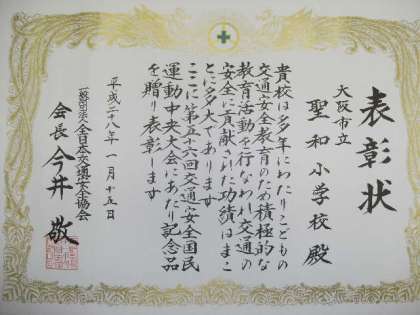 表彰状
大阪市立
聖和小学校殿
貴校は多年にわたりこどもの
交通安全教育のため積極的な
教育活動を行なわれ交通の
安全に貢献された功績はまこ
とに多大であります
ここに第五十六回交通安全国民
運動中央大会にあたり記念品
を贈り表彰します
平成二十八年一月十五日
一般財団法人全日本交通安全協会
会長今井敬